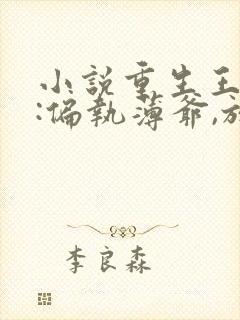 小説重生王
:偏執薄爺,放
李良森